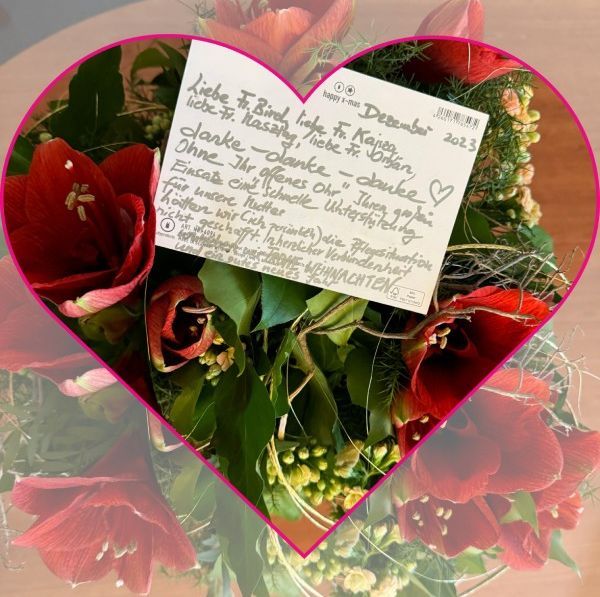 happy x-mas
Dezember 2023
Liebe Fr. Bindl, liebe Fr. Kaiser,
liebe Fr. Haszting, liebe Fr. Urban,
danke – danke – danke ♡
Ohne Ihr "offenes Ohr", Ihren großen
Einsatz eine schnelle Unterstützung
für unsere Mutter
hätten wir (ich primär) die Pflegesituation
nicht geschafft. In herzlicher Verbundenheit
WEIHNACHTEN
und ein gutes neues Jahr